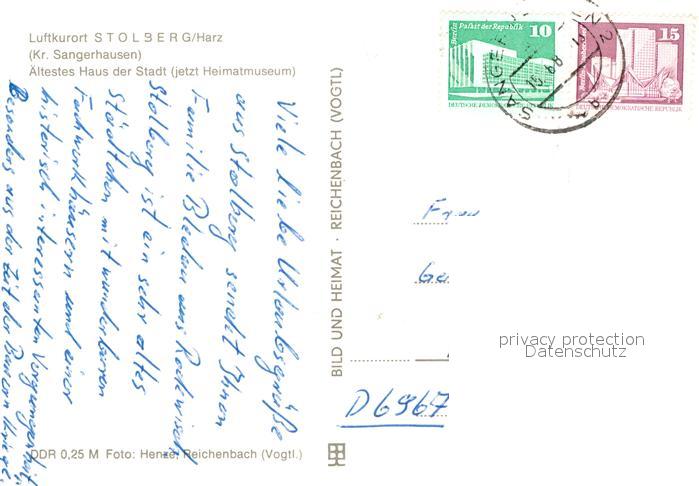 Luftkurort STOLBERG/Harz
(Kr. Sangerhausen)
Ältestes Haus der Stadt (jetzt Heimatmuseum)
Viele liebe Urlaubsgrüße
aus Stolberg sendet Ihnen
Familie aus
Stolberg ist ein sehr altes
Städtchen mit wunderbaren
Fachwerkhäusern und einer
historisch interessanten Vergangenheit,
Besonders aus der Zeit der Bauernkriege.
DDR 0,25 M Foto: Henze, Reichenbach (Vogtl.)
BILD UND HEIMAT · REICHENBACH (VOGTL)
Berlin Palast der Republik
10
DEUTSCHE DEMOKRATISCHE REPUBLIK
15
DEUTSCHE DEMOKRATISCHE REPUBLIK
Frau
Ge
privacy protection
Datenschutz
D6967